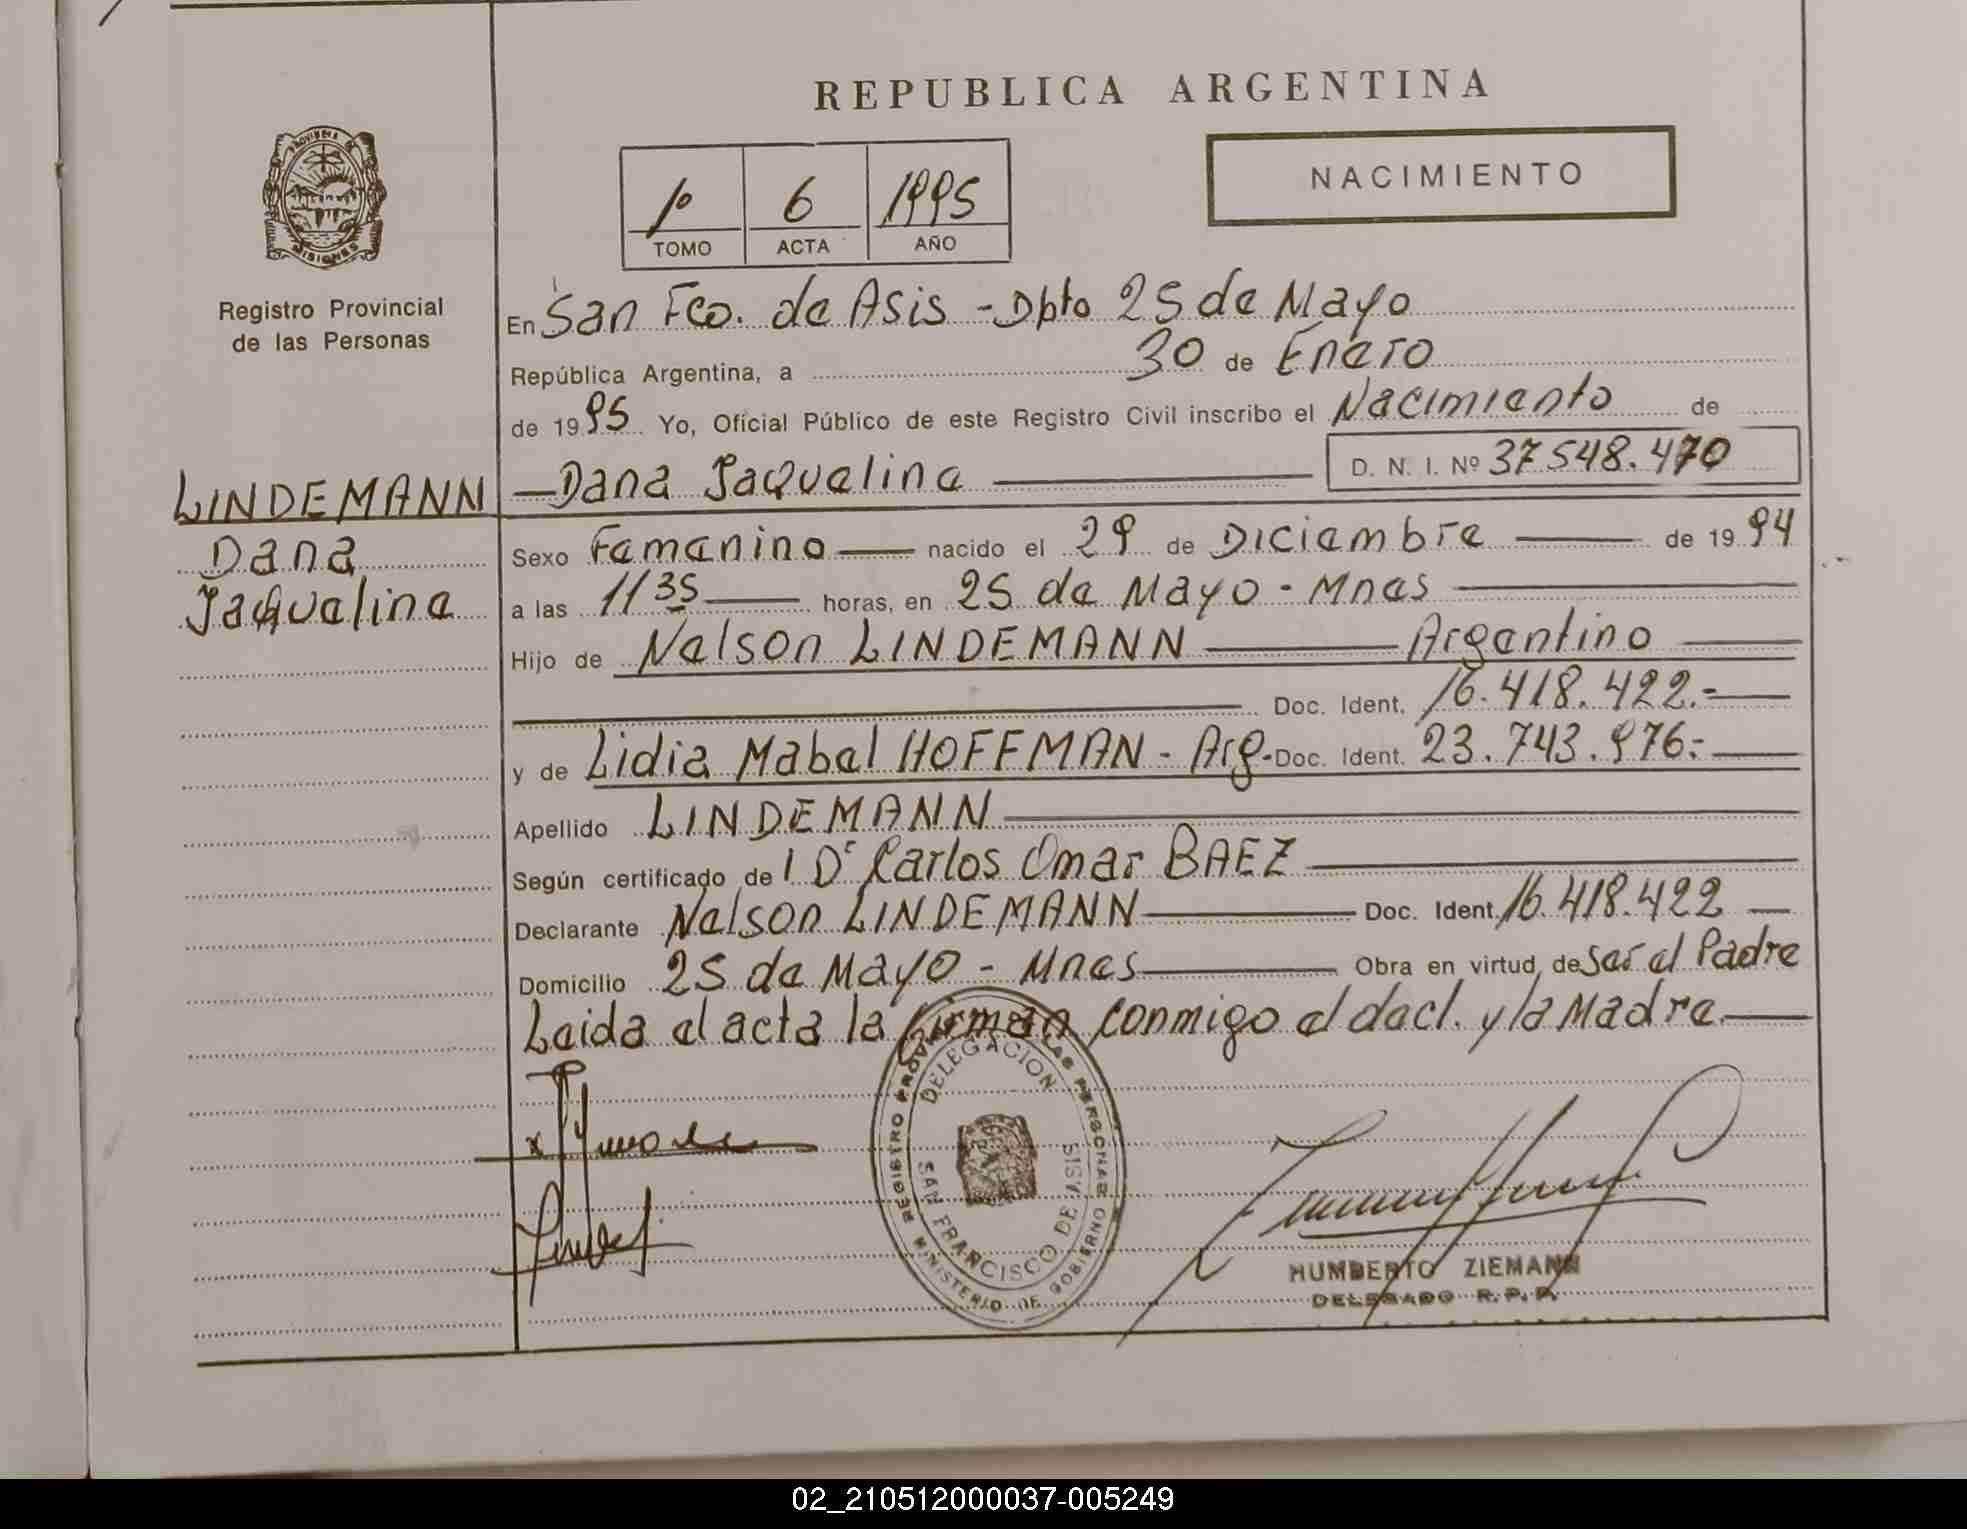 REPUBLICA ARGENTINA
PROVINCIA DE MISIONES
Registro Provincial
de las Personas
1º 6 1995
TOMO ACTA AÑO
NACIMIENTO
En San Fco. de Asis - Dpto 25 de Mayo
República Argentina, a 30 de Enero
de 1995 Yo, Oficial Público de este Registro Civil inscribo el Nacimiento de
Dana Jaqueline D. N. I. Nº 37.548.470
LINDEMANN
Dana
Jaqueline
Sexo Femenino nacido el 29 de Diciembre de 1994
a las 11 35 horas, en 25 de Mayo - Mnes
Hijo de Nelson LINDEMANN Argentino
Doc. Ident. 16.418.422.-
y de Lidia Mabel HOFFMAN - Arg. Doc. Ident. 23.743.976.-
Apellido LINDEMANN
Según certificado de l Dr Carlos Omar BAEZ
Declarante Nelson LINDEMANN Doc. Ident. 16.418.422
Domicilio 25 de Mayo - Mnes Obra en virtud de ser el Padre
Leida el acta la firman conmigo el decl. y la Madre.
REGISTRO PROVINCIAL DE LAS PERSONAS
DELEGACION
SAN FRANCISCO DE ASIS
MINISTERIO DE GOBIERNO
HUMBERTO ZIEMANN
DELEGADO R. P. P.
02_210512000037-005249